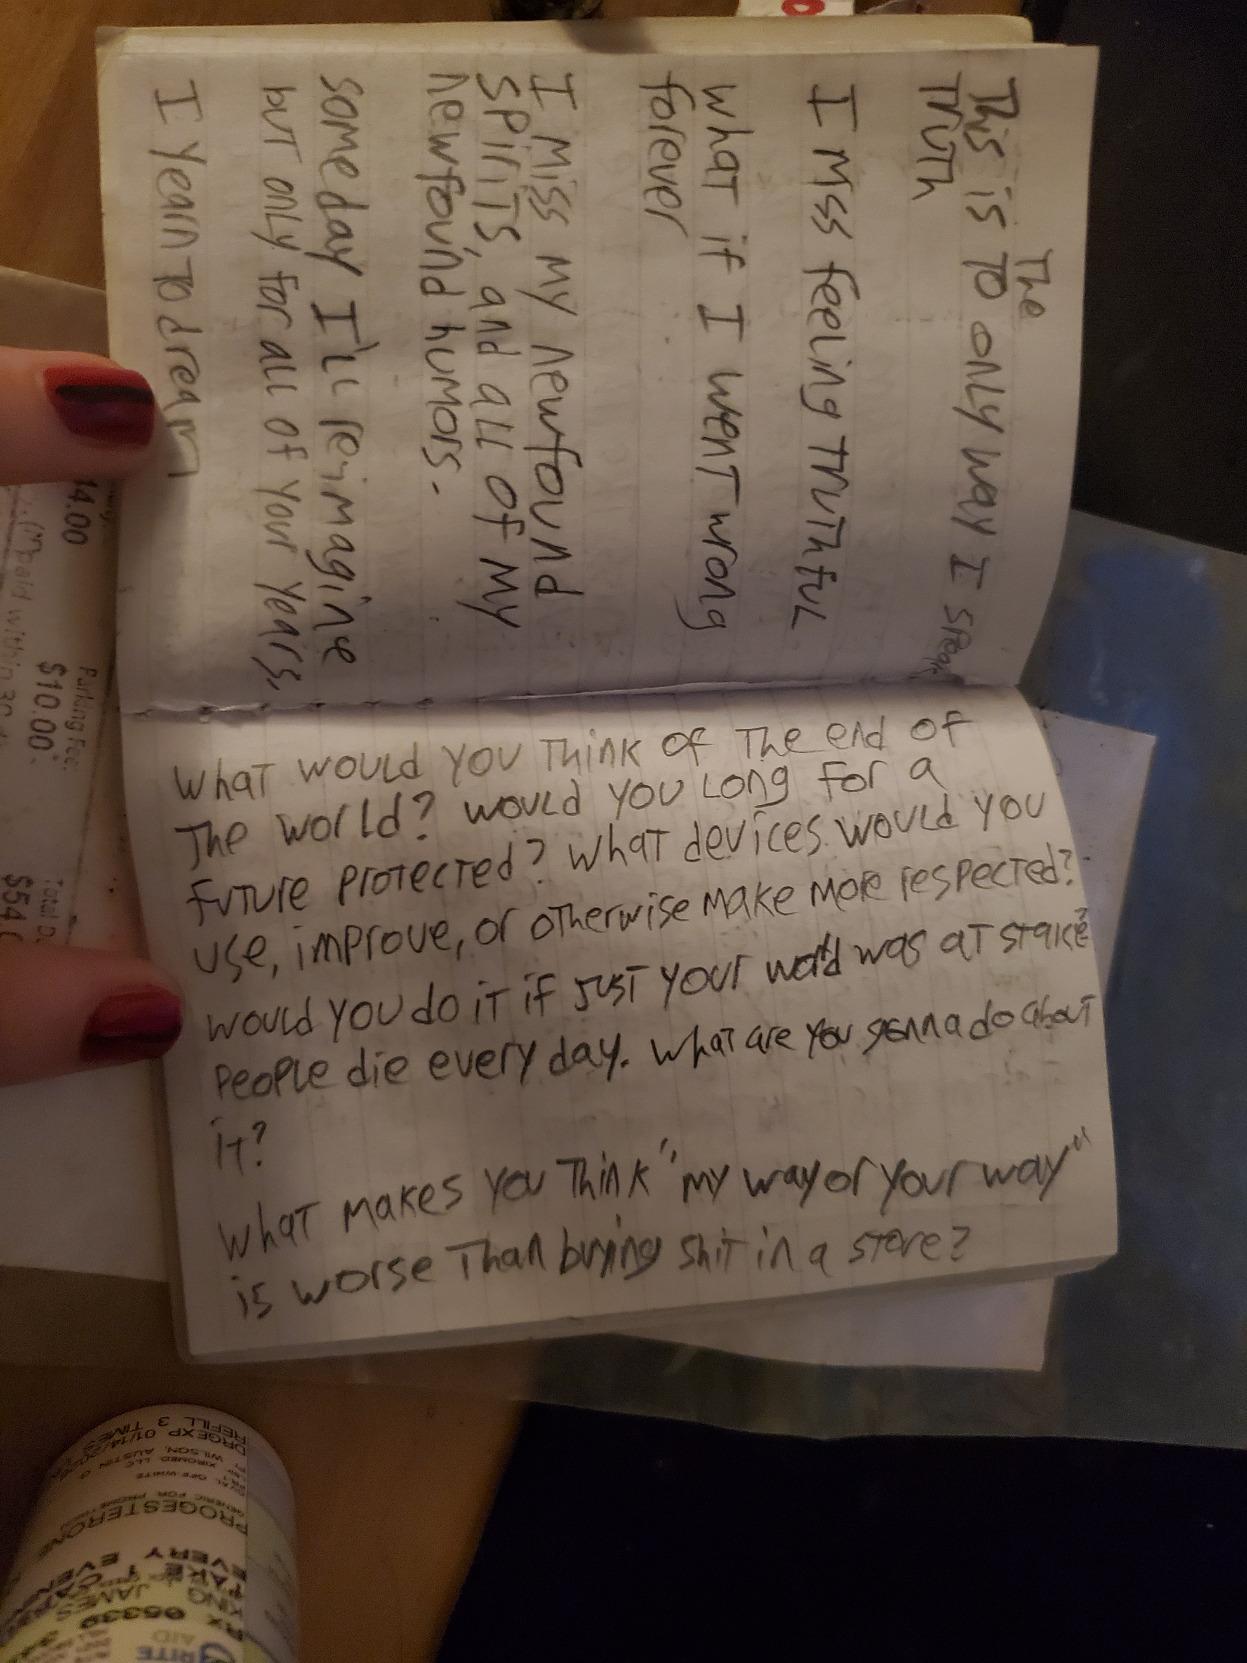 The
This is To only way I speak
TRUTH
I Miss feeling TruThful
what if I went wrong
forever
I Miss my newfound
spirits, and all of my
newfound humors.
someday I'll reimagine
but only for all of your years,
I Yearn To dream
What would you Think of The end of
The world? would you Long for a
future protected? What devices would you
use, improve, or otherwise make more respected?
would you do it if just your world was at stake?
People die every day. what are you gonna do about
it?
What makes you Think "my way or your way"
is worse Than buying shit in a store?
14.00
Parking Fee:
$10.00
Total D
$54
REFILL 3 TIMES
DRGEXP 01/14/
WILSON, AUSTIN G
XIROMED LLC
OVAL OFF-WHITE
GENERIC FOR PROMETRIUM
PROGESTERONE
EVERY EVENING
TAKE 1
KING JAMES
RX 05339
RITE
AID